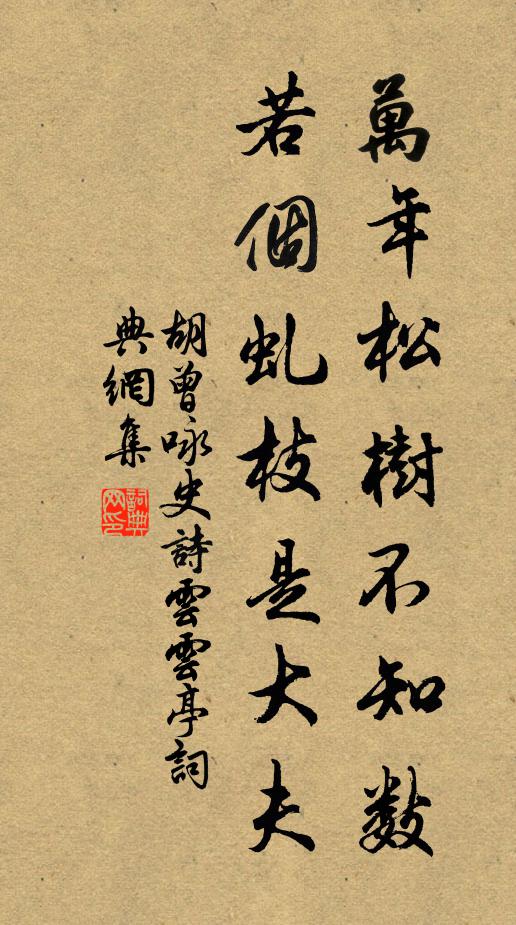 萬年松樹不知數
若個虬枝是大夫
胡曾咏史詩雲雲亭詞
典網集
詞典網印